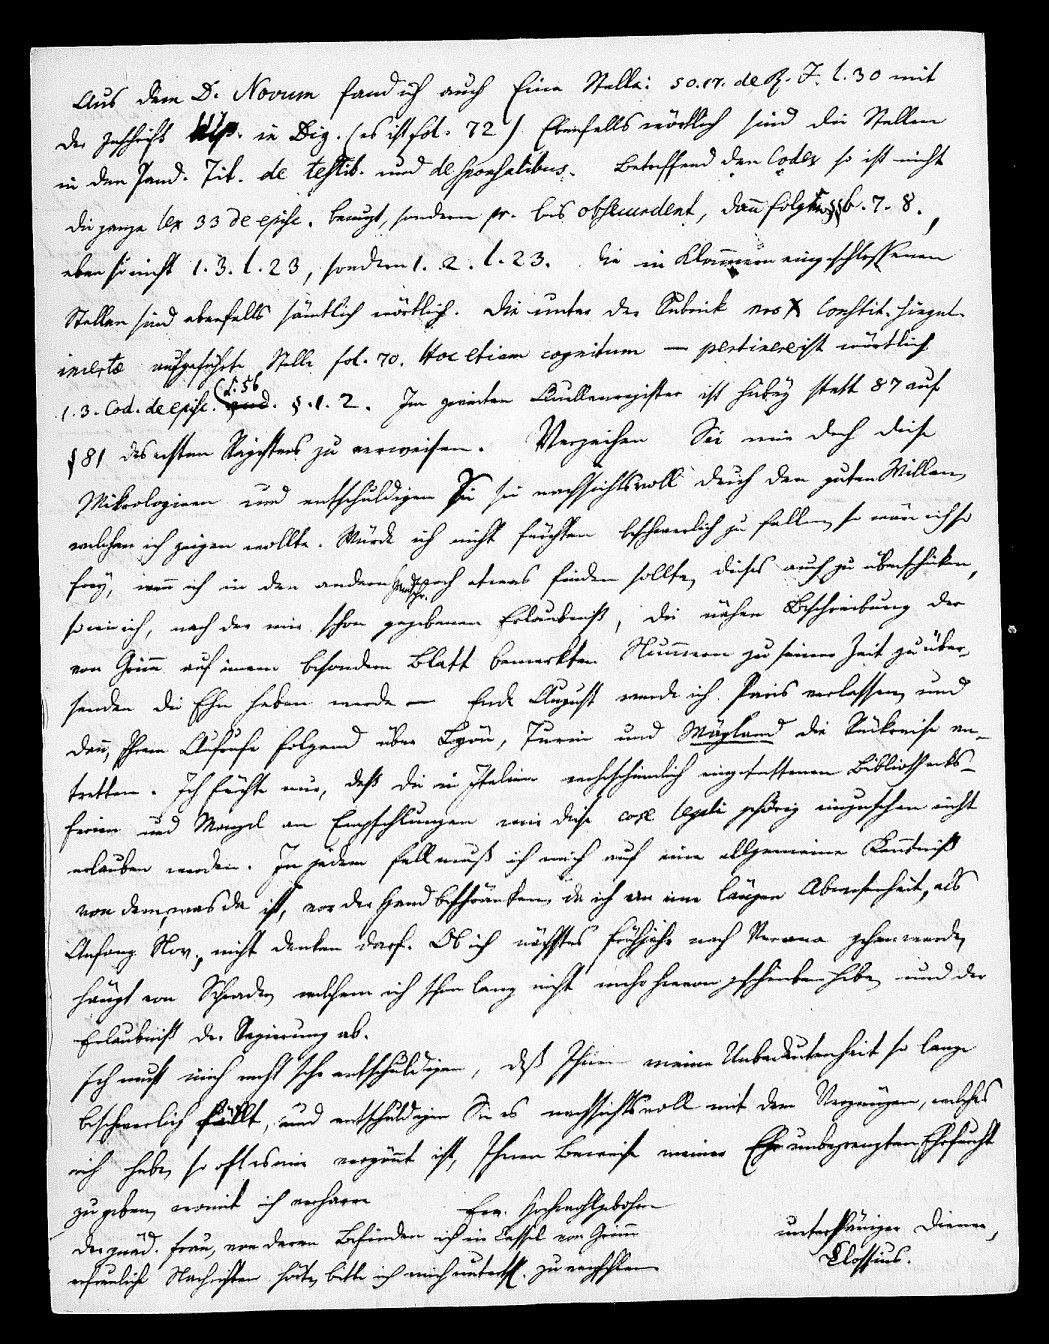 Aus dem D. Novum fand ich auch Eine Stelle: 50.17. de R. J. l. 30 mit
der Inschrift Ulp. in Dig. (es ist fol. 72). Ebenfalls wörtlich sind die Stellen
in den Pand. Tit. de testib. und de sponsalibus. Betreffend den Codex so ist nicht
die ganze lex 33 de episc. benuzt, sondern pr. bis obsecundent, dann folgen §§ 6. 7. 8.,
eben so nicht l. 3. l. 23, sondern l. 2. l. 23. Die in Klammern eingeschlossenen
Stellen sind ebenfalls sämtlich wörtlich. Die unter der Rubrik nro X Constit.
incertae aufgeführte Stelle fol. 70. Hoc etiam cognitum — pertinere ist wörtlich
1. 3. Cod. de episc. (l. 56 §. 1. 2. Im zweiten Quellenregister ist häufig statt 87 auf
§ 81 des ersten Registers zu verweisen. Verzeihen Sie mir doch diese
Mikrologieen und entschuldigen Sie sie nachsichtsvoll durch den guten Willen,
welchen ich zeigen wollte. Würde ich nicht fürchten beschwerlich zu fallen, so wäre ich so
frey, wenn ich in den andern Handschr. noch etwas finden sollte, dieses auch zu überschicken,
so wie ich, nach der mir schon gegebenen Erlaubniß, die nähere Beschreibung der
von Grimm auf einem besondern Blatt bemerkten Nummern zu seiner Zeit zu über-
senden die Ehre haben werde — Ende August werde ich Paris verlassen, und
dann, Ihrem Aufrufe folgend über Lyon, Turin und Mayland die Rückreise an-
tretten. Ich fürchte nur, daß die in Italien wahrscheinlich eingetrettenen Bibliotheks-
ferien und Mangel an Empfehlungen mir diese gehörig einzusehen nicht
erlauben werden. In jedem Fall muß ich mich auf eine allgemeine Kenntniß
von dem, was da ist, vor der Hand beschränken, da ich an eine längere Abwesenheit, als
Anfang Nov., nicht denken darf. Ob ich nächstes Frühjahr nach Verona gehen werde,
hängt von Schrader, welchem ich schon lang nicht mehr hievon geschrieben habe, und der
Erlaubniß der Regierung ab.
Ich muß mich recht sehr entschuldigen, daß Ihnen meine Unbedeutenheit so lange
beschwerlich fällt, und entschuldigen Sie es nachsichtsvoll mit dem Vergnügen, welches
ich habe, so oft es mir vergönnt ist, Ihnen Beweise meiner unbegrenzten Ehrfurcht
zu geben, womit ich verharre
Euer Hochwohlgebohrn
Der gnäd. Frau, von deren Befinden ich in Cassel von Grimm
erfreuliche Nachrichten hörte, bitte ich mich unterth. zu empfehlen
unterthäniger Diener,
Clossius.